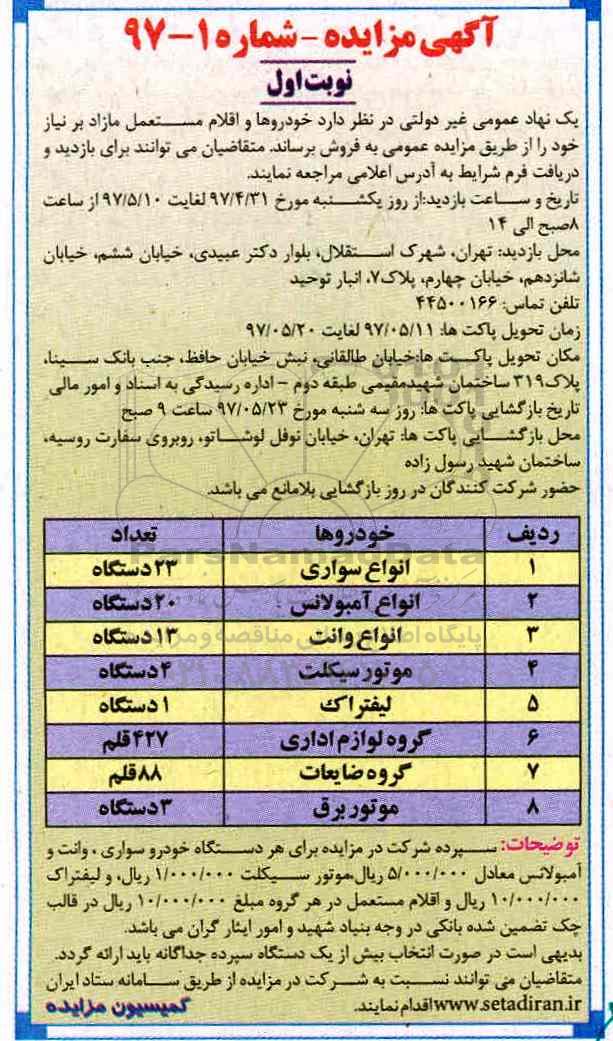 آگهی مزایده - شماره ۱-۹۷
نوبت اول
یک نهاد عمومی غیر دولتی در نظر دارد خودروها و اقلام مستعمل مازاد بر نیاز
خود را از طریق مزایده عمومی به فروش برساند. متقاضیان می توانند برای بازدید و
دریافت فرم شرایط به آدرس اعلامی مراجعه نمایند.
تاریخ و ساعت بازدید:از روز یکشنبه مورخ ۹۷/۴/۳۱ لغایت ۹۷/۵/۱۰ از ساعت
۸صبح الی ۱۴
محل بازدید: تهران، شهرک استقلال، بلوار دکتر عبیدی، خیابان ششم، خیابان
شانزدهم، خیابان چهارم، پلاک۷، انبار توحید
تلفن تماس: ۴۴۵۰۰۱۶۶
زمان تحویل پاکت ها: ۹۷/۰۵/۱۱ لغایت ۹۷/۰۵/۲۰
مکان تحویل پاکت ها:خیابان طالقانی، نبش خیابان حافظ، جنب بانک سینا،
پلاک۳۱۹ ساختمان شهیدمقیمی طبقه دوم - اداره رسیدگی به اسناد و امور مالی
تاریخ بازگشایی پاکت ها: روز سه شنبه مورخ ۹۷/۰۵/۲۳ ساعت ۹ صبح
محل بازگشایی پاکت ها: تهران، خیابان نوفل لوشاتو، روبروی سفارت روسیه،
ساختمان شهید رسول زاده
حضور شرکت کنندگان در روز بازگشایی بلامانع می باشد.
ردیف خودروها تعداد
۱ انواع سواری ۲۳دستگاه
۲ انواع آمبولانس ۲۰دستگاه
۳ انواع وانت ۱۳دستگاه
۴ موتور سیکلت ۴دستگاه
۵ لیفتراک ۱دستگاه
۶ گروه لوازم اداری ۴۲۷قلم
۷ گروه ضایعات ۸۸قلم
۸ موتور برق ۳دستگاه
توضیحات: سپرده شرکت در مزایده برای هر دستگاه خودرو سواری ، وانت و
آمبولانس معادل ۵/۰۰۰/۰۰۰ ریال،موتور سیکلت ۱/۰۰۰/۰۰۰ ریال، و لیفتراک
۱۰/۰۰۰/۰۰۰ ریال و اقلام مستعمل در هر گروه مبلغ ۱۰/۰۰۰/۰۰۰ ریال در قالب
چک تضمین شده بانکی در وجه بنیاد شهید و امور ایثار گران می باشد.
بدیهی است در صورت انتخاب بیش از یک دستگاه سپرده جداگانه باید ارائه گردد.
متقاضیان می توانند نسبت به شرکت در مزایده از طریق سامانه ستاد ایران
www.setadiran.ir اقدام نمایند.
کمیسیون مزایده